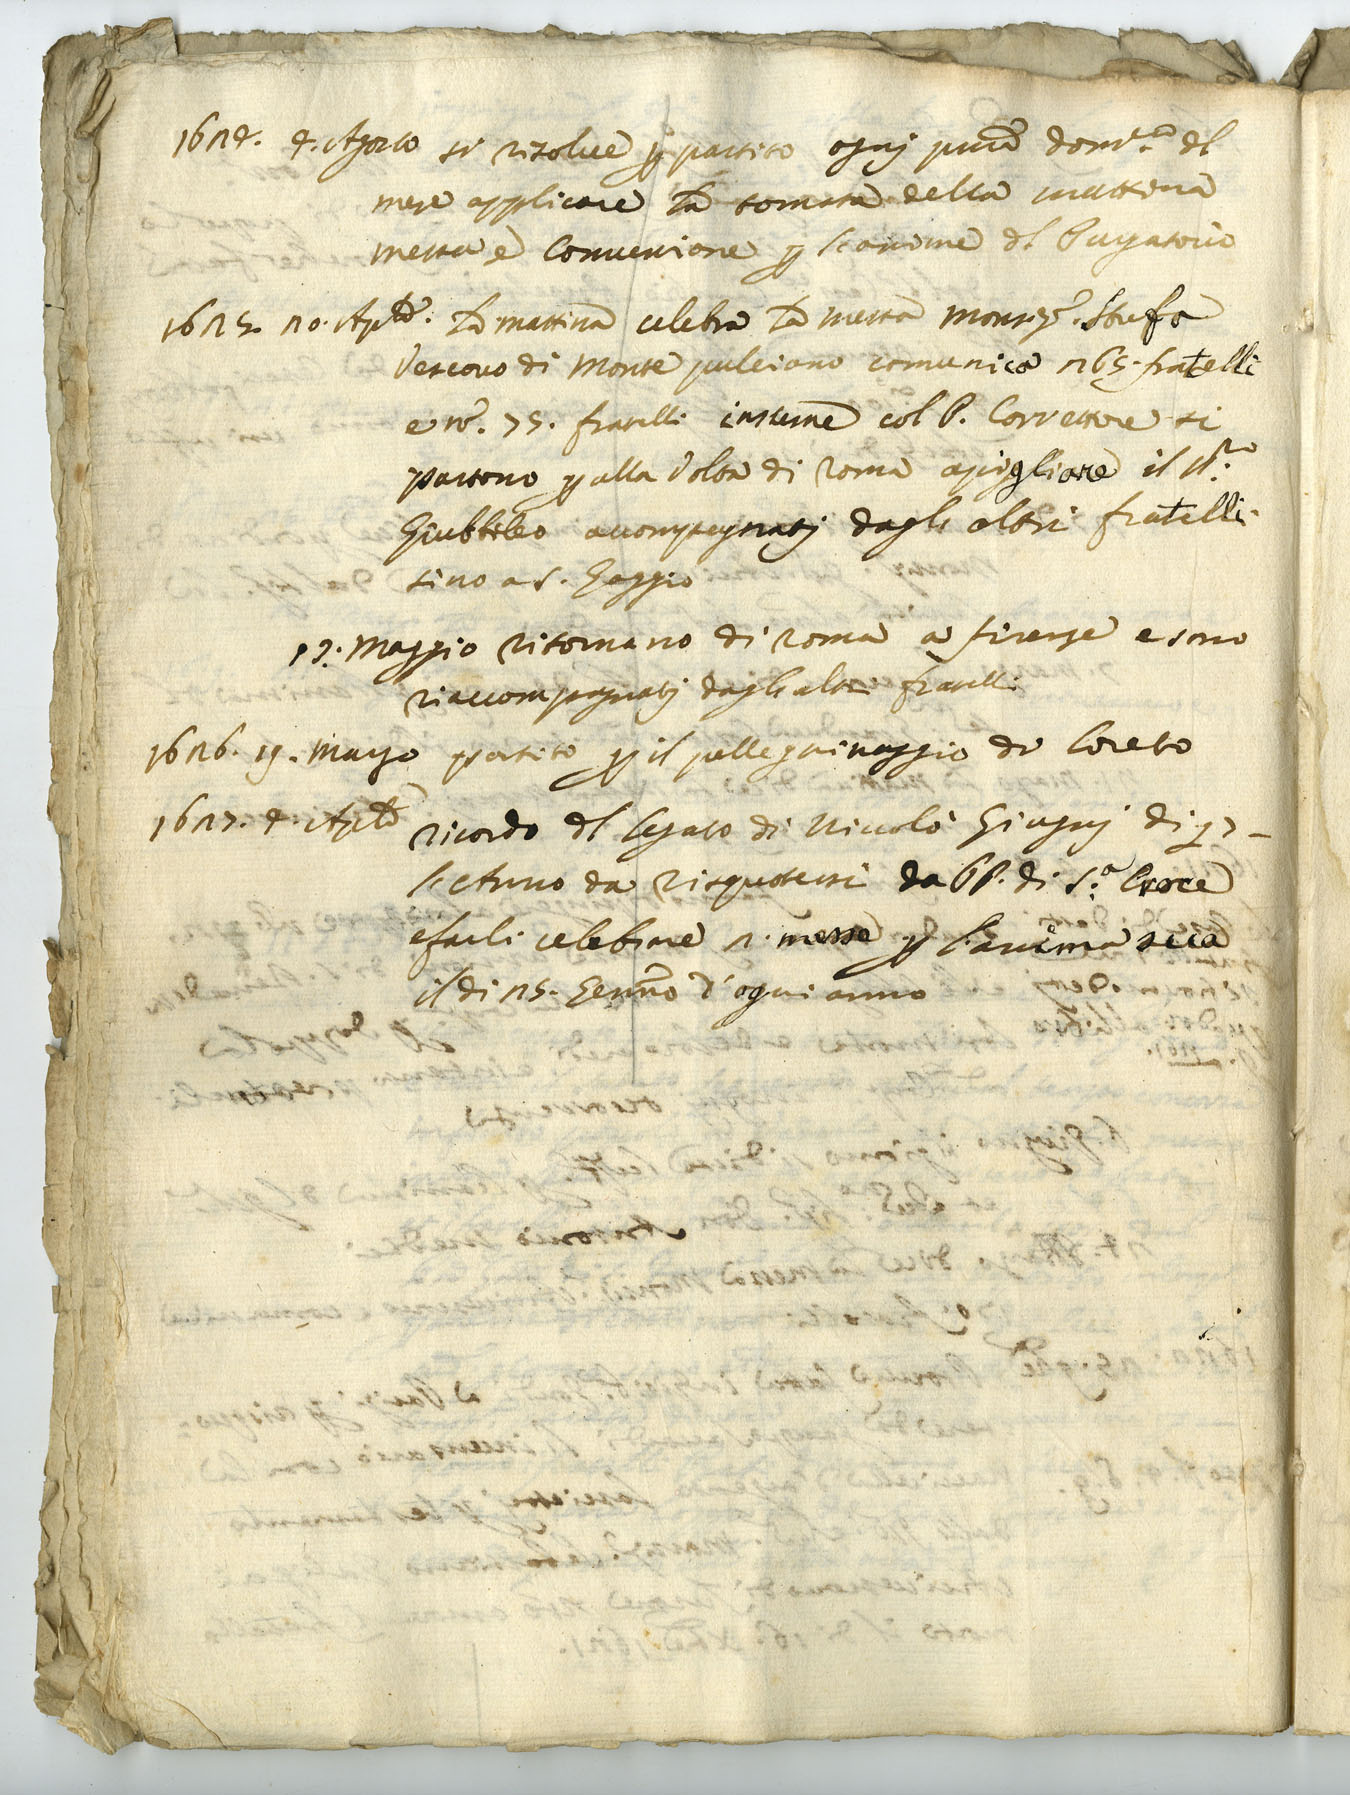 1624. 4. Agosto si risolue p partito ogni prima Dom.ca del
mese applicare la tornata della mattina
messa e Comunione p le anime del Purgatorio
1625. 20. Aple. la mattina celebra la messa Monsig.r Stufa
Vescouo di Monte pulciano comunicò 265. fratelli
e n.o 75. fratelli insieme col P. Correttore si
partono p alla Volta di Roma a pigliare il S.to
Giubbileo accompagnati dagli altri fratelli
sino a S. Gaggio
Maggio ritornano di Roma a firenze e sono
riaccompagnati dagli altri fratelli
1626. 19. Marzo partito p il pellegrinaggio di Loreto
1627. 4. Aple
ricordo del legato di Niccolò Giugni di 7 –
l'Anno da risquotersi da PP. di S.a Croce
e farli celebrare 2. messe p l'anima sua
il di 25. Genno d'ogni anno